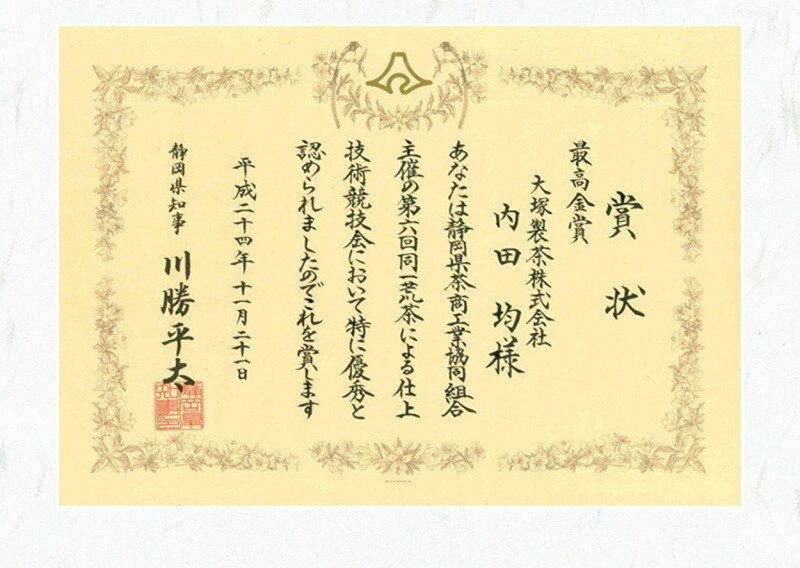 賞状
最高金賞
大塚製茶株式会社
内田均様
あなたは静岡県茶商工業協同組合
主催の第六回同一荒茶による仕上
技術競技会において特に優秀と
認められましたのでこれを賞します
平成二十四年十一月二十一日
静岡県知事 川勝平太